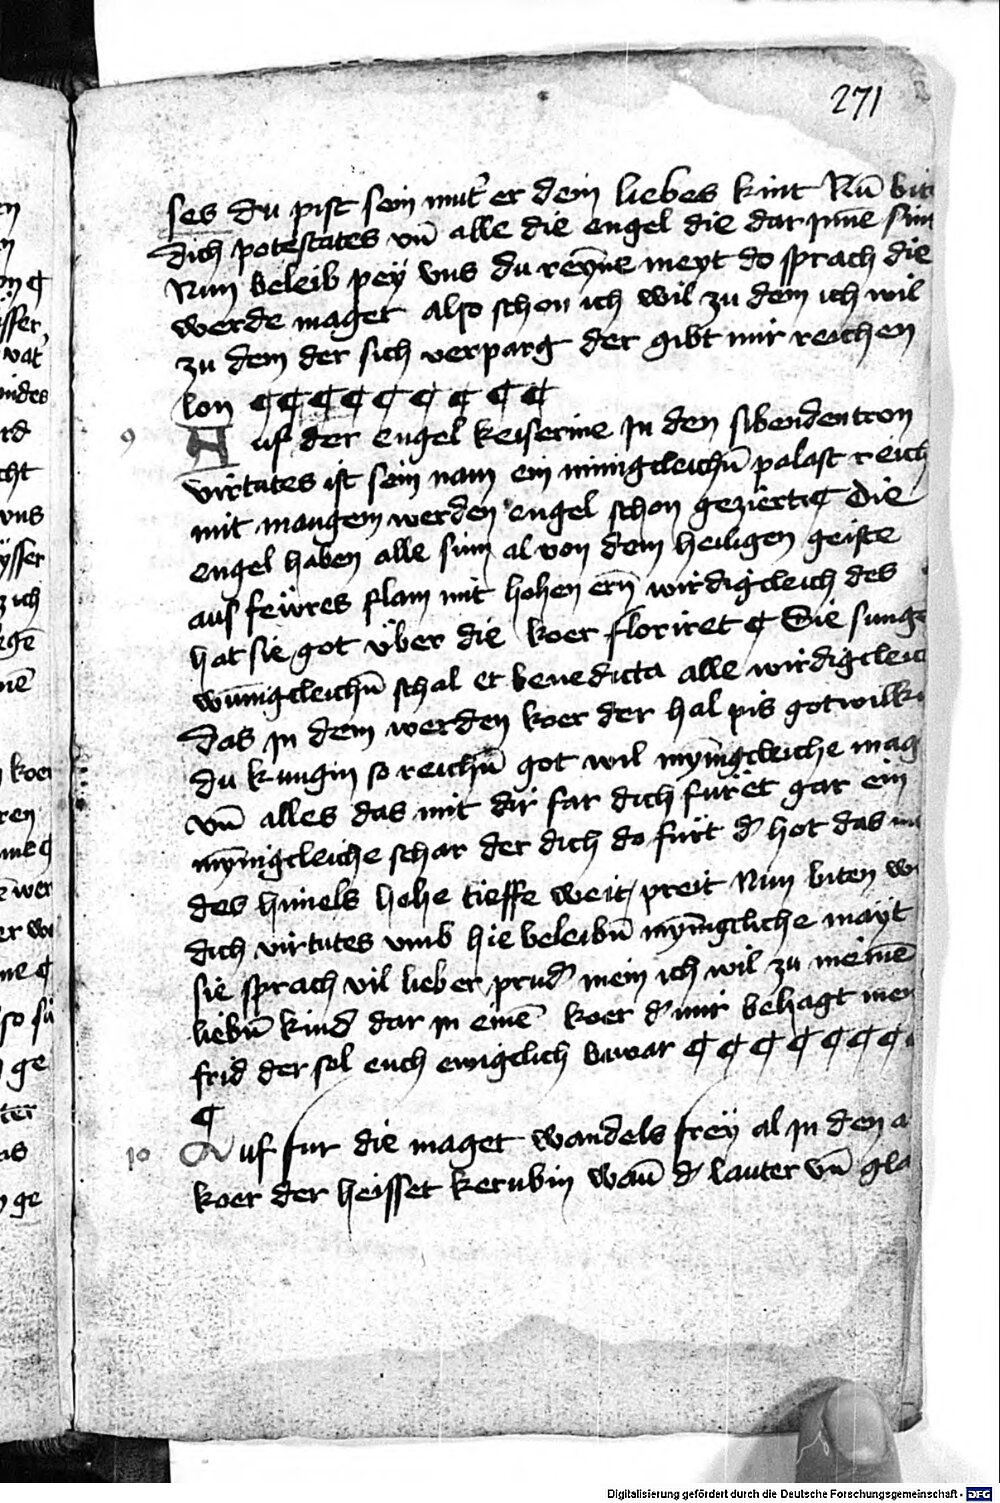 271
ses du pist sein mut' er dein liebes kint Nū bit
dich potestates vn̄ alle die engel die dar jnne sint
Nun beleib pey vns du reyne meyt do sprach die
werde maget also schon ich wil zu dem ich wil
zu dem der sich verparg der gibt mir reichen
lon ¶ ¶ ¶ ¶ ¶ ¶ ¶ ¶ ¶
9 Auf der engel keiserine jn den sibenden tron
virtutes ist sein nam ein minigcleichn̄ palast reich
mit mangem werden engel schon gezieret ¶ Die
engel haben alle sinn al von dem heiligen geiste
aus feüres flam mit hohen ern̄ wirdigcleich des
hat sie got über die koer floriret ¶ Sie sunge
wunnigcleichn̄ schal et benedicta alle wirdigcleich
das jn dem werden koer der hal pis gotwilk
du kungin so reichn̄ got wil mynigcleiche mag
vn̄ alles das mit dir far dich füret gar ein
mynnigcleiche schar der dich do fürt d' hot das
des himels hohe tieffe weit preit Nun biten wir
dich virtutes vmb hie beleibn̄ mynnigcliche mayt
sie sprach vil lieber prud' mein ich wil zu meinē
liebn̄ kind dar jn einē koer d' mir behagt mein
frid der sol euch ewigclich bewar ¶ ¶ ¶ ¶ ¶ ¶ ¶
¶
10 Auf fur die maget wandels frey al jn den
koer der heisset kerubin wan̄ d' lauter vn̄ gla
Digitalisierung gefördert durch die Deutsche Forschungsgemeinschaft - DFG